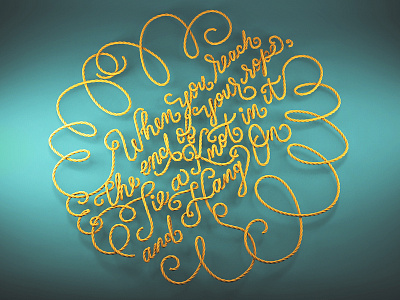 When you reach
the end of your rope,
Tie a Knot in it
and Hang On